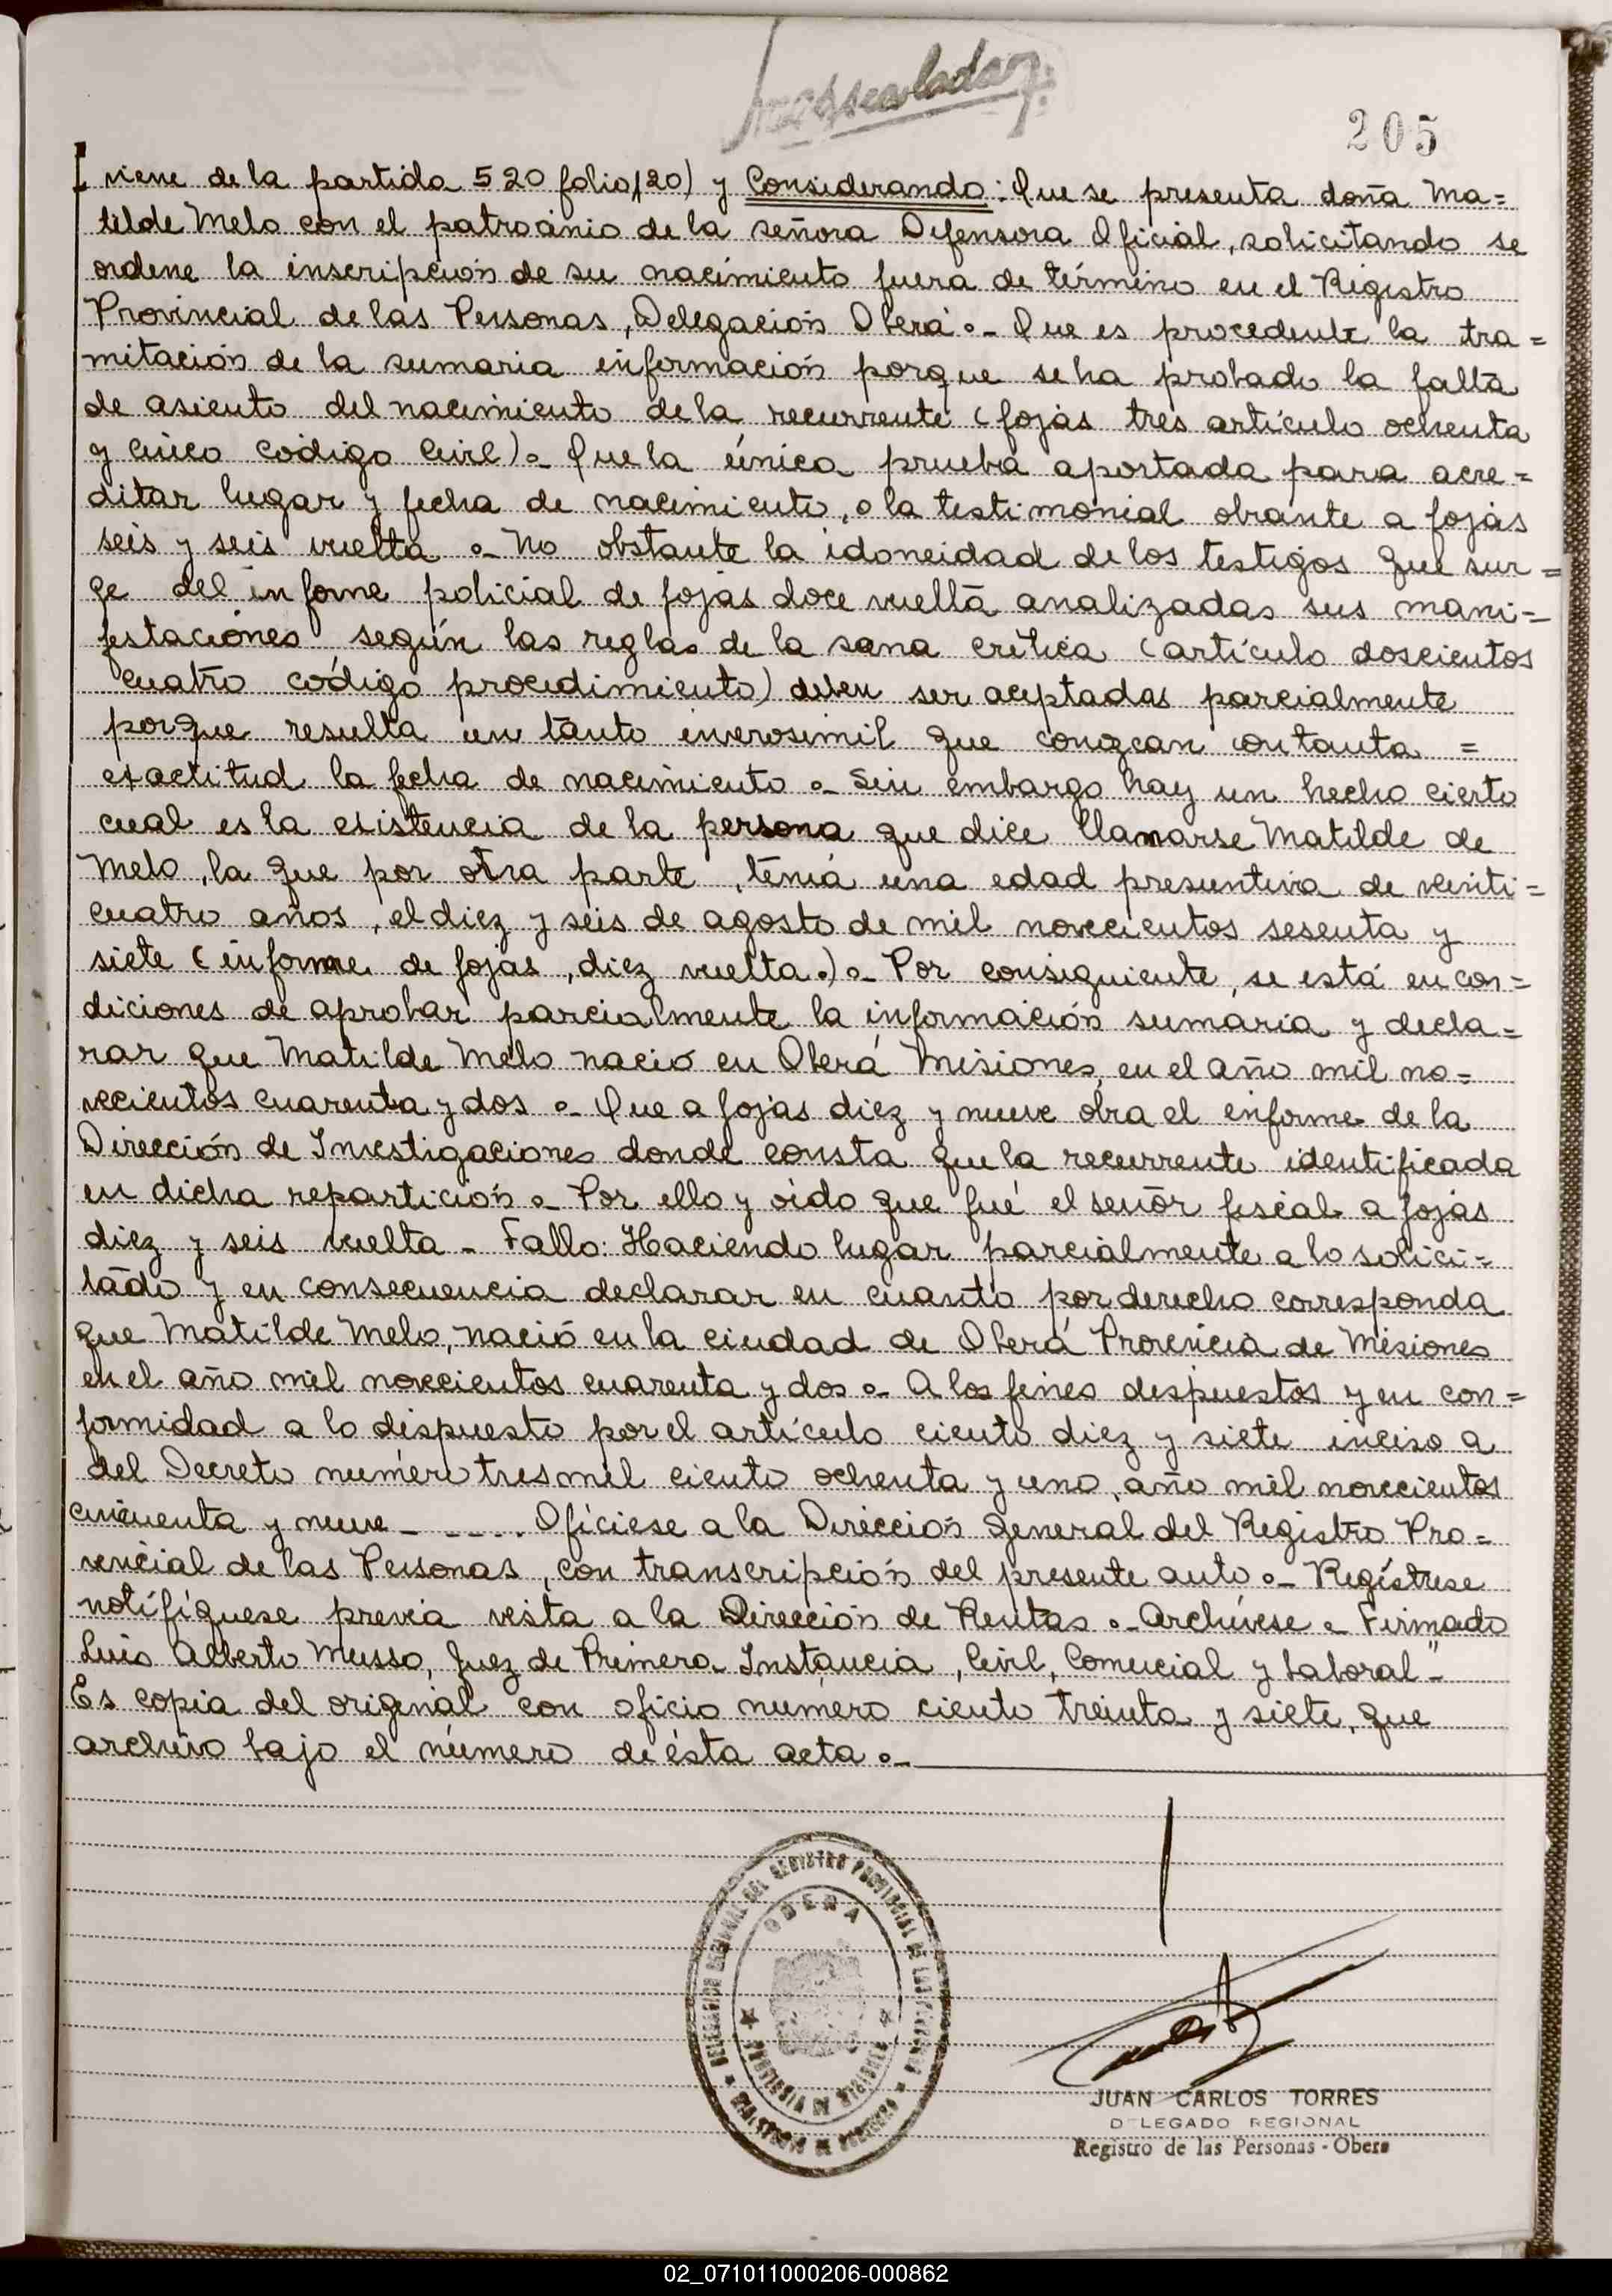 205
( viene de la partida 520 folio 120) y Considerando: Que se presenta doña Ma=
tilde Melo con el patrocinio de la señora Defensora Oficial, solicitando se
ordene la inscripción de su nacimiento fuera de término en el Registro
Provincial de las Personas, Delegación Oberá.- Que es procedente la tra=
mitación de la sumaria información porque se ha probado la falta
de asiento del nacimiento de la recurrente (fojas tres artículo ochenta
y cinco código Civil).- Que la única prueba aportada para acre=
ditar lugar y fecha de nacimiento, o la testimonial obrante a fojas
seis y seis vuelta .- No obstante la idoneidad de los testigos que sur=
ge del informe policial de fojas doce vuelta analizadas sus mani=
festaciones según las reglas de la sana crítica (artículo doscientos
cuatro código procedimiento) deben ser aceptadas parcialmente
porque resulta un tanto inverosimil que conozcan con tanta =
exactitud la fecha de nacimiento .- Sin embargo hay un hecho cierto
cual es la existencia de la persona que dice llamarse Matilde de
Melo, la que por otra parte, tenía una edad presuntiva de veinti=
cuatro años, el diez y seis de agosto de mil novecientos sesenta y
siete (informe de fojas, diez vuelta.).- Por consiguiente, se está en con=
diciones de aprobar parcialmente la información sumaria y decla=
rar que Matilde Melo nació en Oberá Misiones, en el año mil no=
vecientos cuarenta y dos .- Que a fojas diez y nueve obra el informe de la
Dirección de Investigaciones donde consta que la recurrente identificada
en dicha repartición .- Por ello y oído que fué el señor fiscal a fojas
diez y seis vuelta - Fallo: Haciendo lugar parcialmente a lo solici=
tado y en consecuencia declarar en cuanto por derecho corresponda
que Matilde Melo, nació en la ciudad de Oberá Provincia de Misiones
en el año mil novecientos cuarenta y dos .- A los fines dispuestos y en con=
formidad a lo dispuesto por el artículo ciento diez y siete inciso a
del Decreto número tres mil ciento ochenta y uno, año mil novecientos
cincuenta y nueve - - - - . Ofíciese a la Dirección General del Registro Pro=
vincial de las Personas, con transcripción del presente auto .- Regístrese
notifíquese previa vista a la Dirección de Rentas .- Archívese .- Firmado
Luis Alberto Musso, Juez de Primera Instancia, Civil, Comercial y Laboral"-
Es copia del original con oficio número ciento treinta y siete, que
archivo bajo el número de ésta acta .-
DELEGACION REGIONAL DEL REGISTRO PROVINCIAL DE LAS PERSONAS
OBERA
PROVINCIA DE MISIONES
MINISTERIO DE GOBIERNO
JUAN CARLOS TORRES
DELEGADO REGIONAL
Registro de las Personas - Obera
02_071011000206-000862